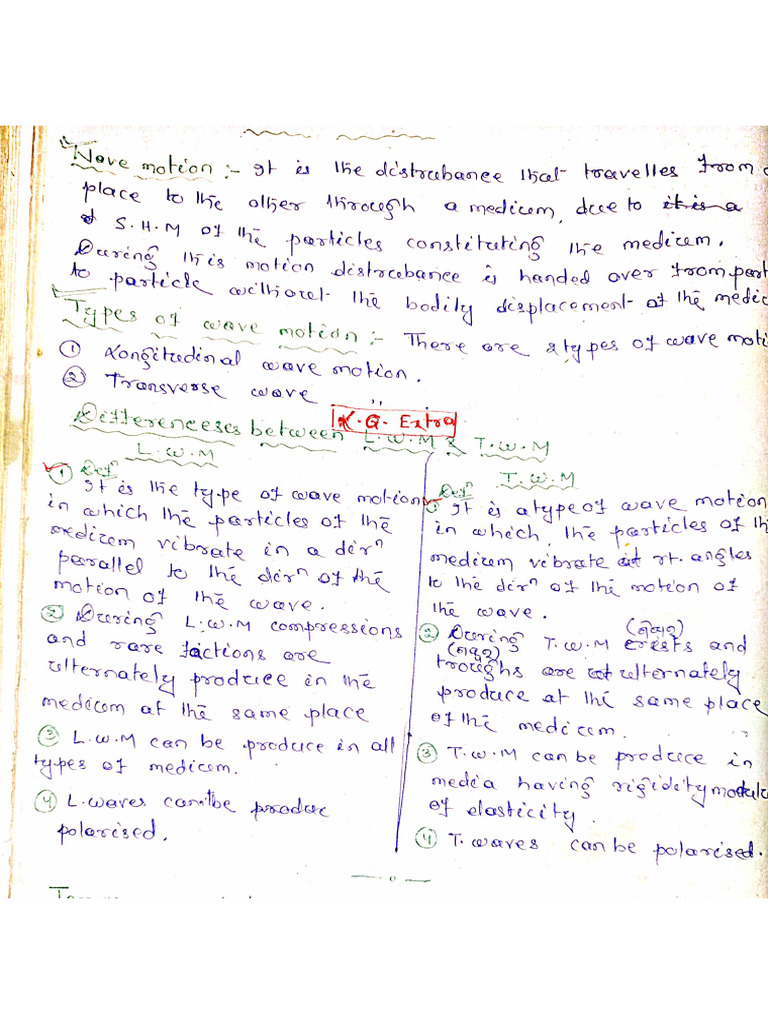 Wave motion :- It is the distrubance that travelles from
place to the other through a medium, due to it is a
S.H.M of the particles constituting the medium.
During this motion distrubance is handed over from part
to particle without the bodily displacement of the medic
Types of wave motion :- There are 2 types of wave moti
① Longitudinal wave motion.
② Transverse wave ,,
L.Q. Extra
Differenceses between L.W.M & T.W.M
L.W.M
① Defⁿ
It is the type of wave motion
in which the particles of the
medium vibrate in a dirⁿ
parallel to the dirⁿ of the
motion of the wave.
② During L.W.M compressions
and rare factions are
alternately produce in the
medium at the same place
③ L.W.M can be produce in all
types of medium.
④ L. waves can't be produc
polarised.
T.W.M
Defⁿ
① It is a type of wave motion
in which, the particles of th
medium vibrate at rt. angles
to the dirⁿ of the motion of
the wave.
② During T.W.M crests and
troughs are alternately
produce at the same place
of the medium.
③ T.W.M can be produce in
media having rigidity modulu
of elasticity.
④ T. waves can be polarised.